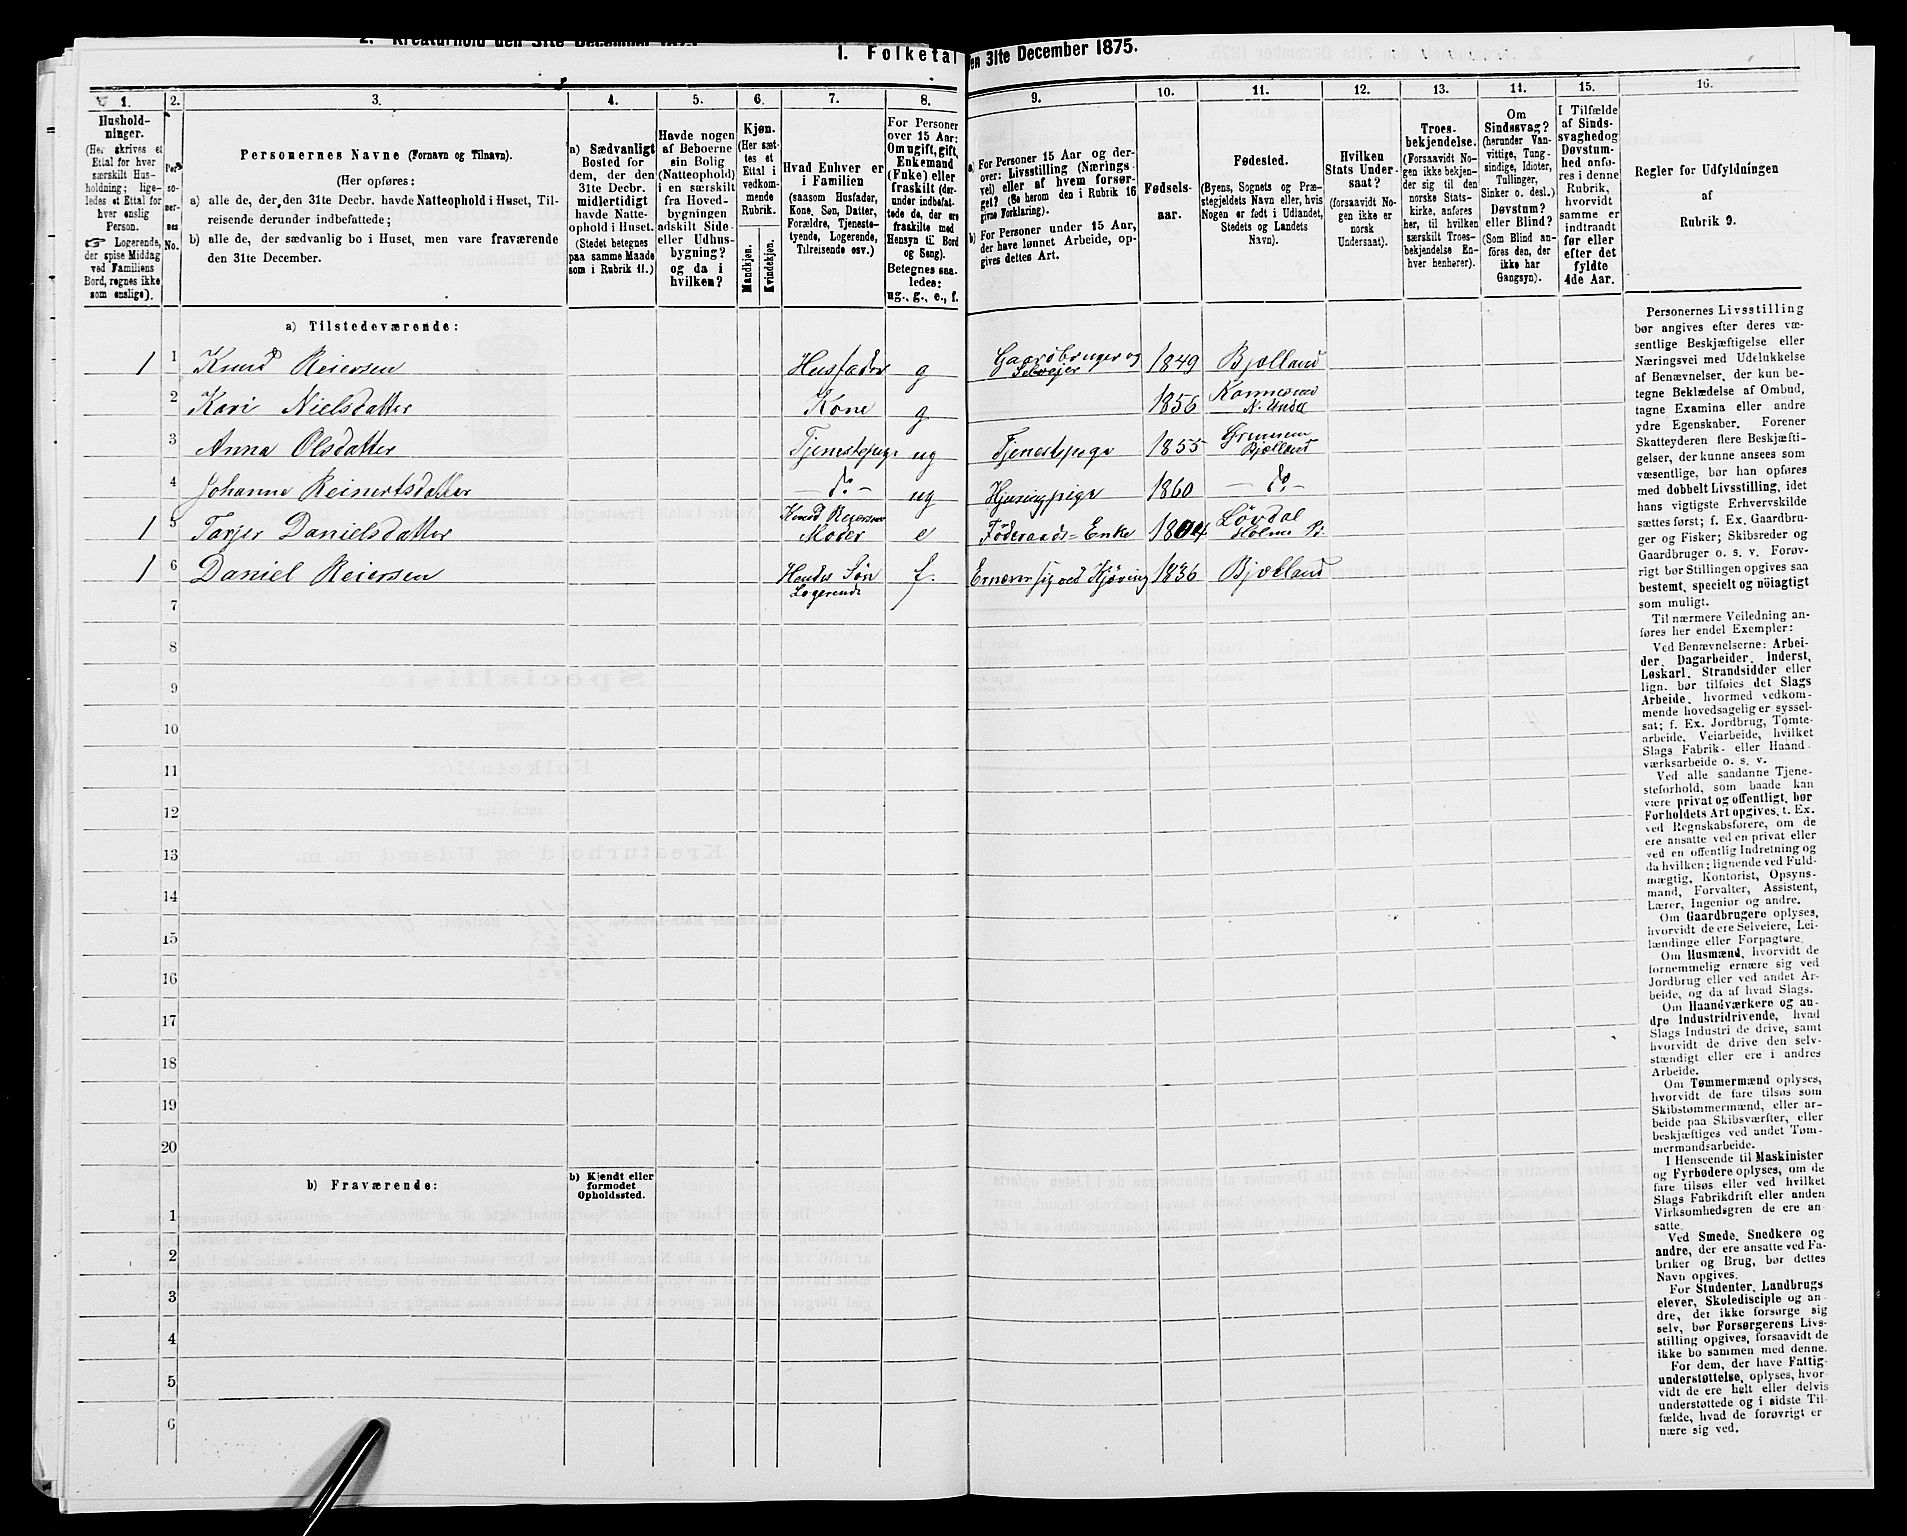 2. Kreaturhold den 31te December 1875
1. Folketal den 31te December 1875.
1.
Hushold-
ninger.
(Her skrives et
Ettal for hver
særskilt Hus-
holdning; lige-
ledes et Ettal for
hver enslig
Person.
☞ Logerende,
der spise Middag
ved Familiens
Bord, regnes ikke
som enslige).
2.
Per-
so-
ner-
nes
No.
3.
Personernes Navne (Fornavn og Tilnavn).
(Her opføres:
a) alle de, der den 31te Decbr. havde Natteophold i Huset, Til-
reisende derunder indbefattede;
b) alle de, der sædvanlig bo i Huset, men vare fraværende
den 31te December.
4.
a) Sædvanligt
Bosted for
dem, der den
31te Decbr.
midlertidigt
havde Natte-
ophold i Huset.
(Stedet betegnes
paa samme Maade
som i Rubrik 11.)
5.
Havde nogen
af Beboerne
sin Bolig
(Natteophold)
i en særskilt
fra Hoved-
bygningen
adskilt Side-
eller Udhus-
bygning?
og da i
hvilken?
6.
Kjøn.
(Her sæt-
tes et
Ettal i
vedkom-
mende
Rubrik.
Mandkjøn.
Kvindekjøn.
7.
Hvad Enhver er
i Familien
(saasom Husfader,
Kone, Søn, Datter,
Forældre, Tjeneste-
tyende, Logerende,
Tilreisende osv.)
8.
For Personer
over 15 Aar:
Om ugift, gift,
Enkemand
(Enke) eller
fraskilt (der-
under indbefat-
tede de, der ere
fraskilte med
Hensyn til Bord
og Seng).
Betegnes saa-
ledes:
ug., g., e., f.
9.
a) For Personer 15 Aar og der-
over: Livsstilling (Nærings-
vei) eller af hvem forsør-
get? (Se herom den i Rubrik 16
givne Forklaring).
b) For Personer under 15 Aar,
der have lønnet Arbeide, op-
gives dettes Art.
10.
Fødsels-
aar.
11.
Fødested.
(Byens, Sognets og Præ-
stegjeldets Navn eller, hvis
Nogen er født i Udlandet,
Stedets og Landets
Navn).
12.
Hvilken
Stats Under-
saat?
(forsaavidt No-
gen ikke er
norsk
Undersaat).
13.
Troes-
bekjendelse.
(Forsaavidt No-
gen ikke bekjen-
der sig til den
norske Stats-
kirke, anføres
her, til hvilken
særskilt Troes-
bekjendelse En-
hver henhører).
14.
Om
Sindssvag?
(herunder Van-
vittige, Tung-
sindige, Idioter,
Tullinger,
Sinker o. desl.)
Døvstum?
eller Blind?
(Som Blind an-
føres den, der
ikke har
Gangsyn).
15.
I Tilfælde
af Sinds-
svaghed og
Døvstum-
hed onfø-
res i denne
Rubrik,
hvorvidt
samme er
indtraadt
før eller
efter det
fyldte
4de Aar.
16.
Regler for Udfyldningen
af
Rubrik 9.
a) Tilstedeværende:
1 1 Knud Reiersen Husfader g Gaardbruger og Selvejer 1849 Bjelland
2 Kari Nielsdatter Kone g 1856 N. Undal
3 Anna Olsdatter Tjenestepige ug Tjenestepige 1855 Bjelland
4 Johanne Reinertsdatter — do — ug 1860 — do —
1 5 Tarjer Danielsdatter Knud Reiersen Moder e Føderaads=Enke 1804 Løvdal Holme Pr
1 6 Daniel Reiersen Hendes Søn Logerende f. Ernærer sig ved 1836 Bjelland
7
8
9
10
11
12
13
14
15
16
17
18
19
20
b) Fraværende:
b) Kjendt eller
formodet
Opholdssted.
1
2
3
4
5
6
Personernes Livsstilling
bør angives efter deres væ-
sentlige Beskjæftigelse eller
Næringsvei med Udelukkelse
af Benævnelser, der kun be-
tegne Beklædelse af Ombud,
tagne Examina eller andre
ydre Egenskaber. Forener
Skatteyderen flere Beskjæfti-
gelser, der kunne ansees som
væsentlige, bør han opføres
med dobbelt Livsstilling, idet
hans vigtigste Erhvervskilde
sættes først; f. Ex. Gaardbru-
ger og Fisker; Skibsreder og
Gaardbruger o. s. v. Forøv-
rigt bør Stillingen opgives saa
bestemt, specielt og nöiagtigt
som muligt.
Til nærmere Veiledning an-
føres her endel Exempler:
Ved Benævnelserne: Arbei-
der, Dagarbeider, Inderst,
Løskarl, Strandsidder eller
lign. bør tilføies det Slags
Arbeide, hvormed vedkom-
mende hovedsagelig er syssel-
sat; f. Ex. Jordbrug, Tomte-
arbeide, Veiarbeide, hvilket
Slags Fabrik- eller Haand-
værksarbeide o. s. v.
Ved alle saadanne Tjene-
steforhold, som baade kan
være privat og offentligt, bør
Forholdets Art opgives, t. Ex.
ved Regnskabsførere, om de
ere ansatte ved en privat eller
ved en offentlig Indretning og
da hvilken; lignende ved Fuld-
mægtig, Kontorist, Opsyns-
mand, Forvalter, Assistent,
Lærer, Ingeniør og andre.
Om Gaardbrugere oplyses,
hvorvidt de ere Selveiere, Lei-
lændinge eller Forpagtere.
Om Husmænd, hvorvidt de
fornemmelig ernære sig ved
Jordbrug eller ved andet Ar-
beide, og da af hvad Slags.
Om Haandværkere og an-
dre Industridrivende, hvad
Slags Industri de drive, samt
hvorvidt de drive den selv-
stændigt eller ere i andres
Arbeide.
Om Tømmermænd oplyses,
hvorvidt de fare tilsøs som
Skibstømmermænd, eller ar-
beide paa Skibsværfter, eller
beskjæftiges ved andet Tøm-
mermandsarbeide.
I Henseende til Maskinister
og Fyrbødere oplyses, om de
fare tilsøs eller ved hvilket
Slags Fabrikdrift eller anden
Virksomhedsgren de ere an-
satte.
Ved Smede, Snedkere og
andre, der ere ansatte ved Fa-
briker og Brug, bør dettes
Navn opgives.
For Studenter, Landbrugs-
elever, Skoledisciple og an-
dre, der ikke forsørge sig
selv, bør Forsørgerens Livs-
stilling opgives, forsaavidt de
ikke bo sammen med denne.
For dem, der have Fattig-
understøttelse, oplyses, hvor-
vidt de ere helt eller delvis
understøttede og i sidste Til-
fælde, hvad de forøvrigt er-
nære sig ved.